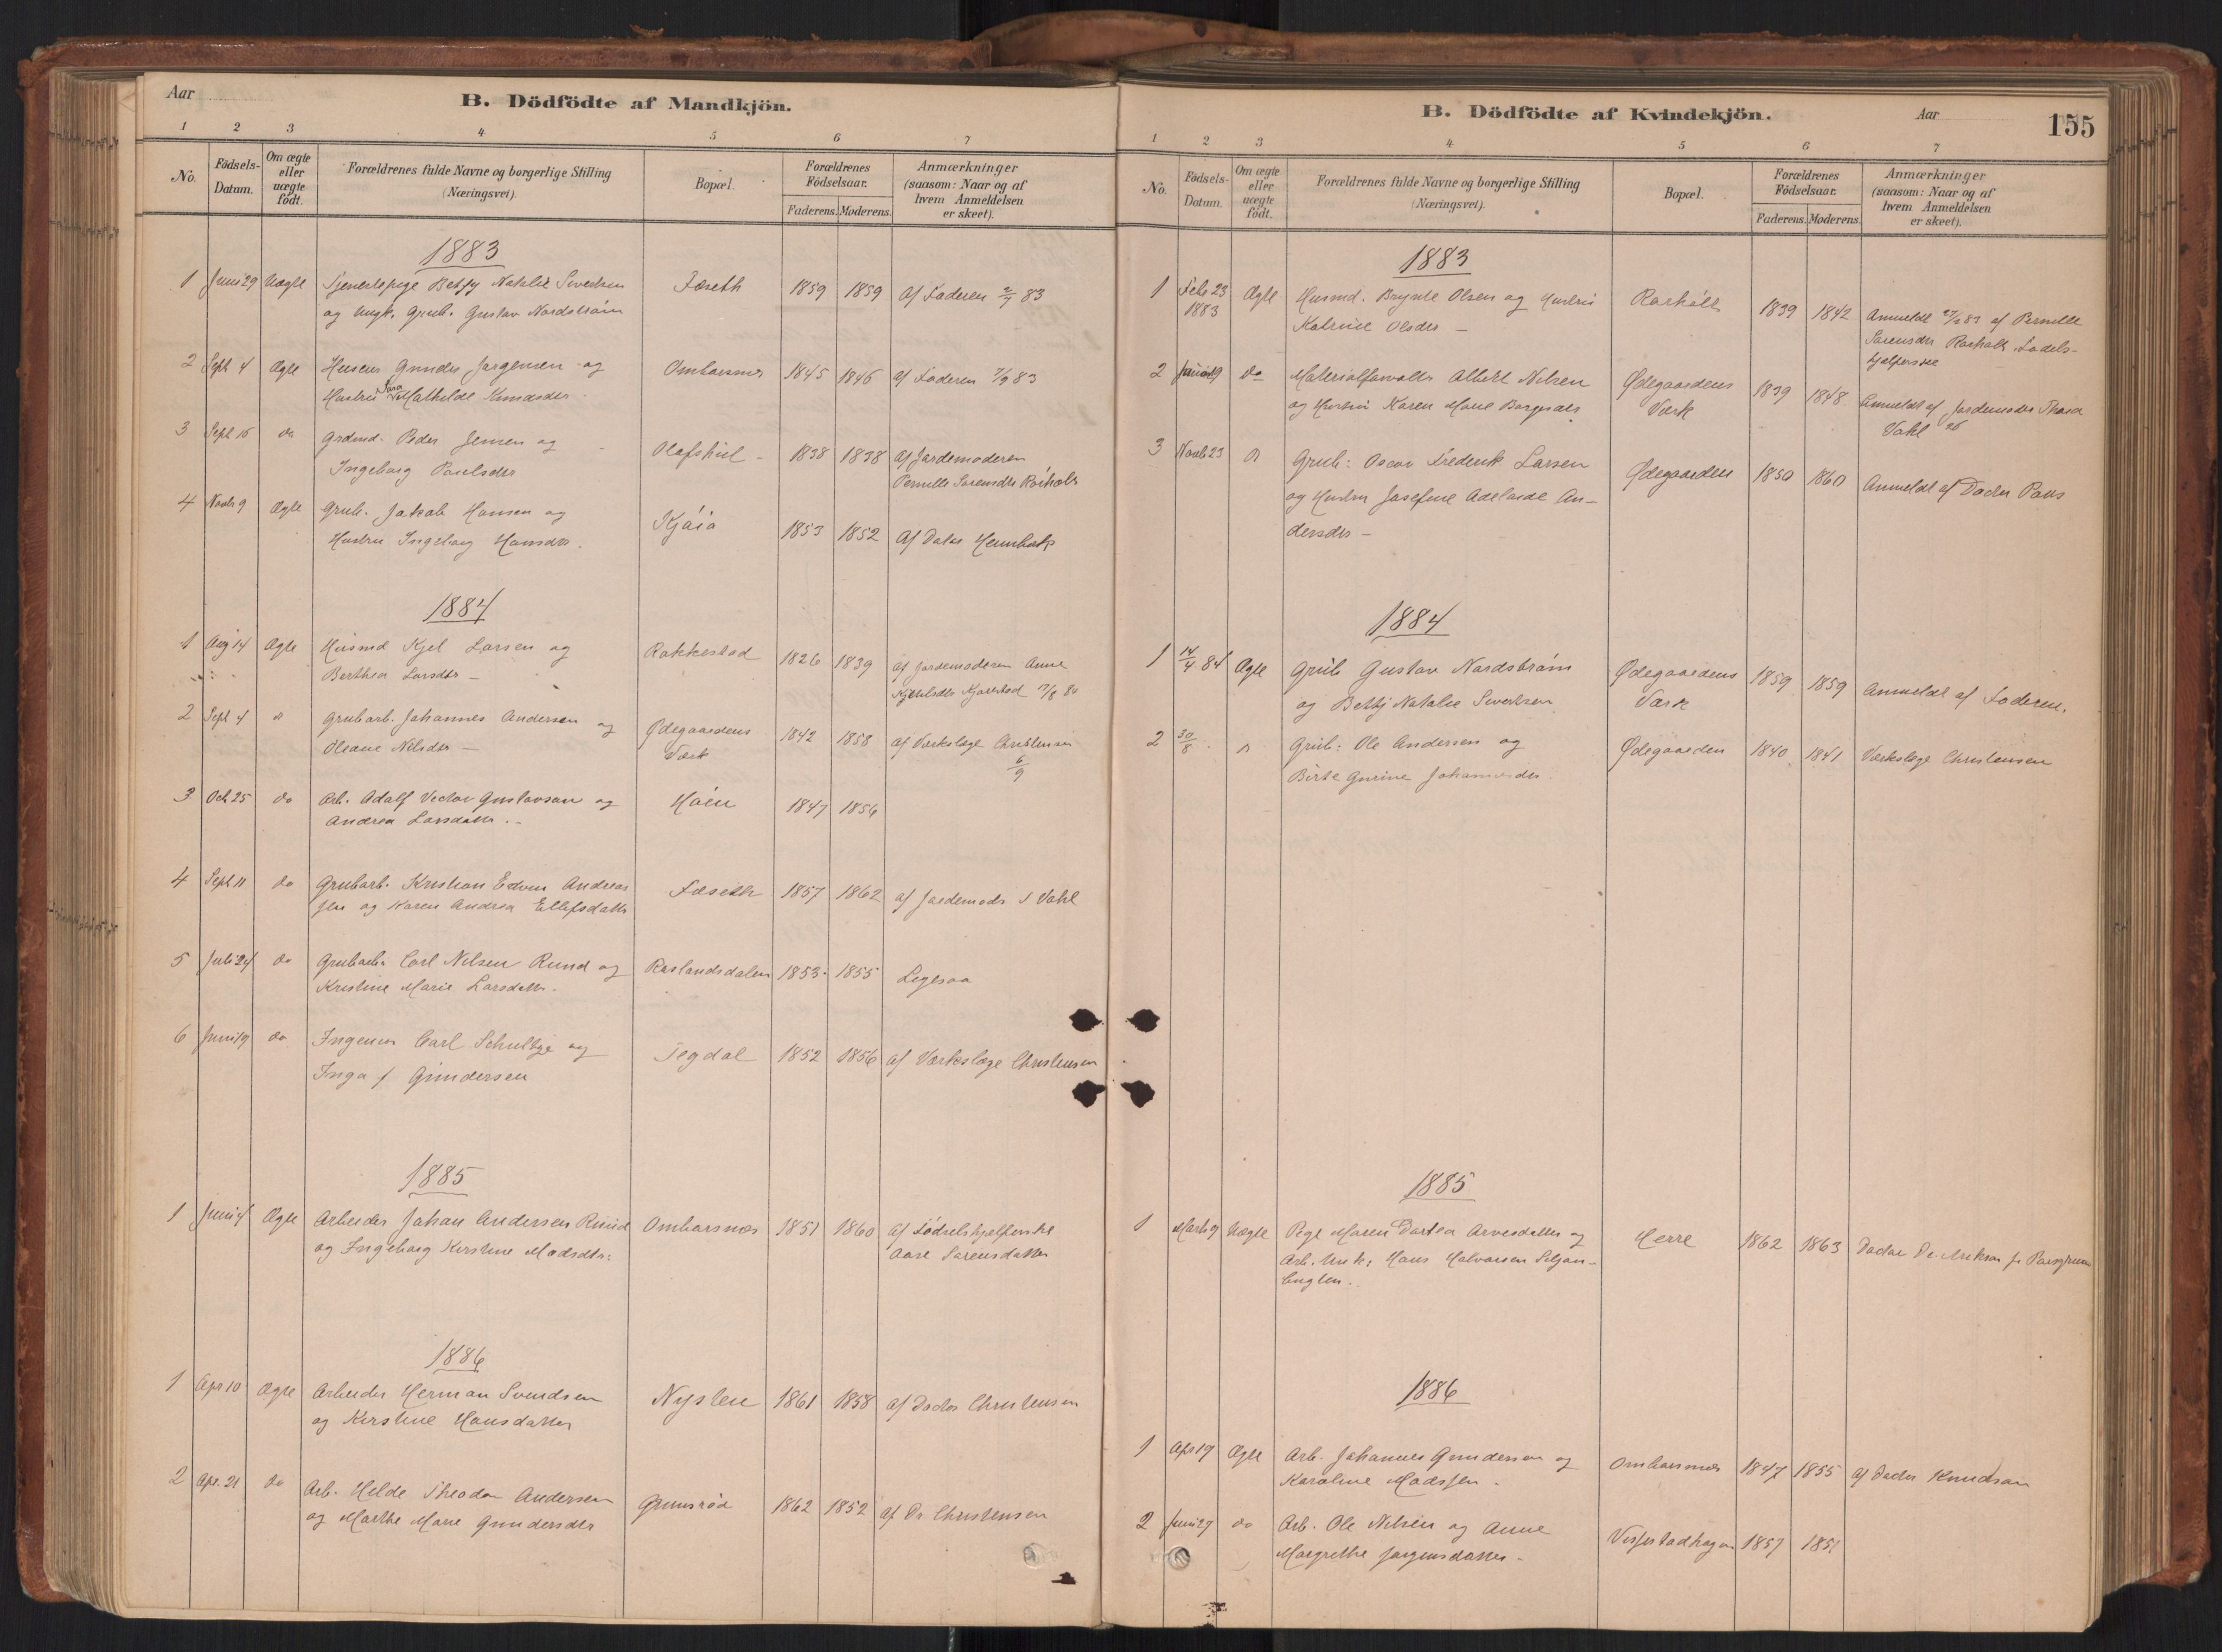 Aar
B. Dödfödte af Mandkjön.
1 2 3 4 5 6 7
No. Födsels-Datum. Om ægte eller uægte födt. Forældrenes fulde Navne og borgerlige Stilling (Næringsvei). Bopæl. Forældrenes Födselsaar. Faderens. Moderens. Anmærkninger (saasom: Naar og af hvem Anmeldelsen er skeet).
1883
1 Juni 29 Uægte Tjenestepige Betsy Natalie Sivertsen Fæseth 1859 1859 af Faderen 2/7 83
og Ungk. Grub. Gustav Nordström
2 Sept 4 Ægte Gunder Jørgensen og Ombarsnes 1845 1846 af Faderen 7/9 83
Hustru Mathilde Knudsdr
3 Sept 15 do Grdmd. Peder Jensen og Olafskiel - 1838 1838 af Jordemoderen
Ingeborg Poulsdtr Pernille Sørensdtr Rørholt
4 Novb 9 Ægte Grub. Jakob Hansen og Kjöia 1853 1852 af Doktor
Hustru Ingeborg Hansdtr.
1884
1 Aug 14 Ægte Husmd Kjel Larsen og Rakkestad 1826 1839 af Jordemoderen Anne
Berthea Larsdtr - Kjøstad
2 Sept 4 " Grubarb. Johannes Andersen og Ødegaardens 1842 1858 af Værkslæge Christensen
Oleane Nilsdtr - Værk 6/9
3 Oct 25 do Arb. Adolf Victor Gustavson og Höen 1847 1856
Andrea Larsdatter. -
4 Sept 11 do Grubarb. Kristian Edvin Andreas Fæseth 1857 1862 af Jordemoder Vahl
sen og Karen Andrea Ellefsdatter
5 Juli 24 do Grubarb. Carl Nilsen Rund og Roslandsdalen 1853 1855 Ligesaa
Kristine Marie Larsdatter.
6 Juni 19 do Ingeniør Carl Schultze og Tegdal 1852 1856 af Værkslæge Christensen
Inga f Gundersen
1885
1 Juni 4 Ægte Arbeider Johan Andersen Ruud Ombarsnæs 1851 1860 af Fødselshjælperske
og Ingeborg Kirstine Madsdtr. Aase Sørensdatter
1886
1 Apr 10 Ægte Arbeider Herman Svendsen Nysten 1861 1858 af Doctor Christensen
og Kirstine Hansdatter
2 Apr. 21 do Arb. Helde Theodor Andersen Grimsrød 1862 1852 af Dr Christensen
og Marthe Marie Gundersdtr
B. Dödfödte af Kvindekjön. Aar 155
1 2 3 4 5 6 7
No. Födsels-Datum. Om ægte eller uægte födt. Forældrenes fulde Navne og borgerlige Stilling (Næringsvei). Bopæl. Forældrenes Födselsaar. Faderens. Moderens. Anmærkninger (saasom: Naar og af hvem Anmeldelsen er skeet).
1883
1 Feb 23 Ægte Husmd. Brynte Olsen og Hustru Rørholt 1839 1842 Anmeldt af Pernille
1883 Katrine Olsdtr - Sørensdtr Rørholt Fødsels-
hjelperske
2 Juni 19 do Materialforvalter Albert Nilsen Ødegaardens 1839 1848 Anmeldt af Jordemoder Thora
og Hustru Karen Marie Borgersdtr Værk Vahl
3 Novb 23 do Grub: Oscar Frederik Larsen Ødegaarden 1850 1860 Anmeldt af Doctor Paus
og Hustru Josefine Adelaide An-
dersdtr -
1884
1 14/4 84 Ægte Grub Gustav Nordström Ødegaardens 1859 1859 Anmeldt af Faderen.
og Betsy Natalie Sivertsen Værk
2 30/8 do Grub: Ole Andersen og Ødegaarden 1840 1841 Værkslæge Christensen
Birte Gurine Johannesdtr.
1885
1 Marts 9 Uægte Pige Maren Dortea Arvesdatter og Herre 1862 1863 Doctor
Arb. Unk. Hans Halvorsen
1886
1 Apr 17 Ægte Arb. Johannes Gundersen og Ombarsnæs 1847 1855 af Doctor Knudson
Karoline Madssen.
2 Juni 29 do Arb. Ole Nilsen og Anne Vissestadhagen 1857 1851
Margrethe Jørgensdatter -